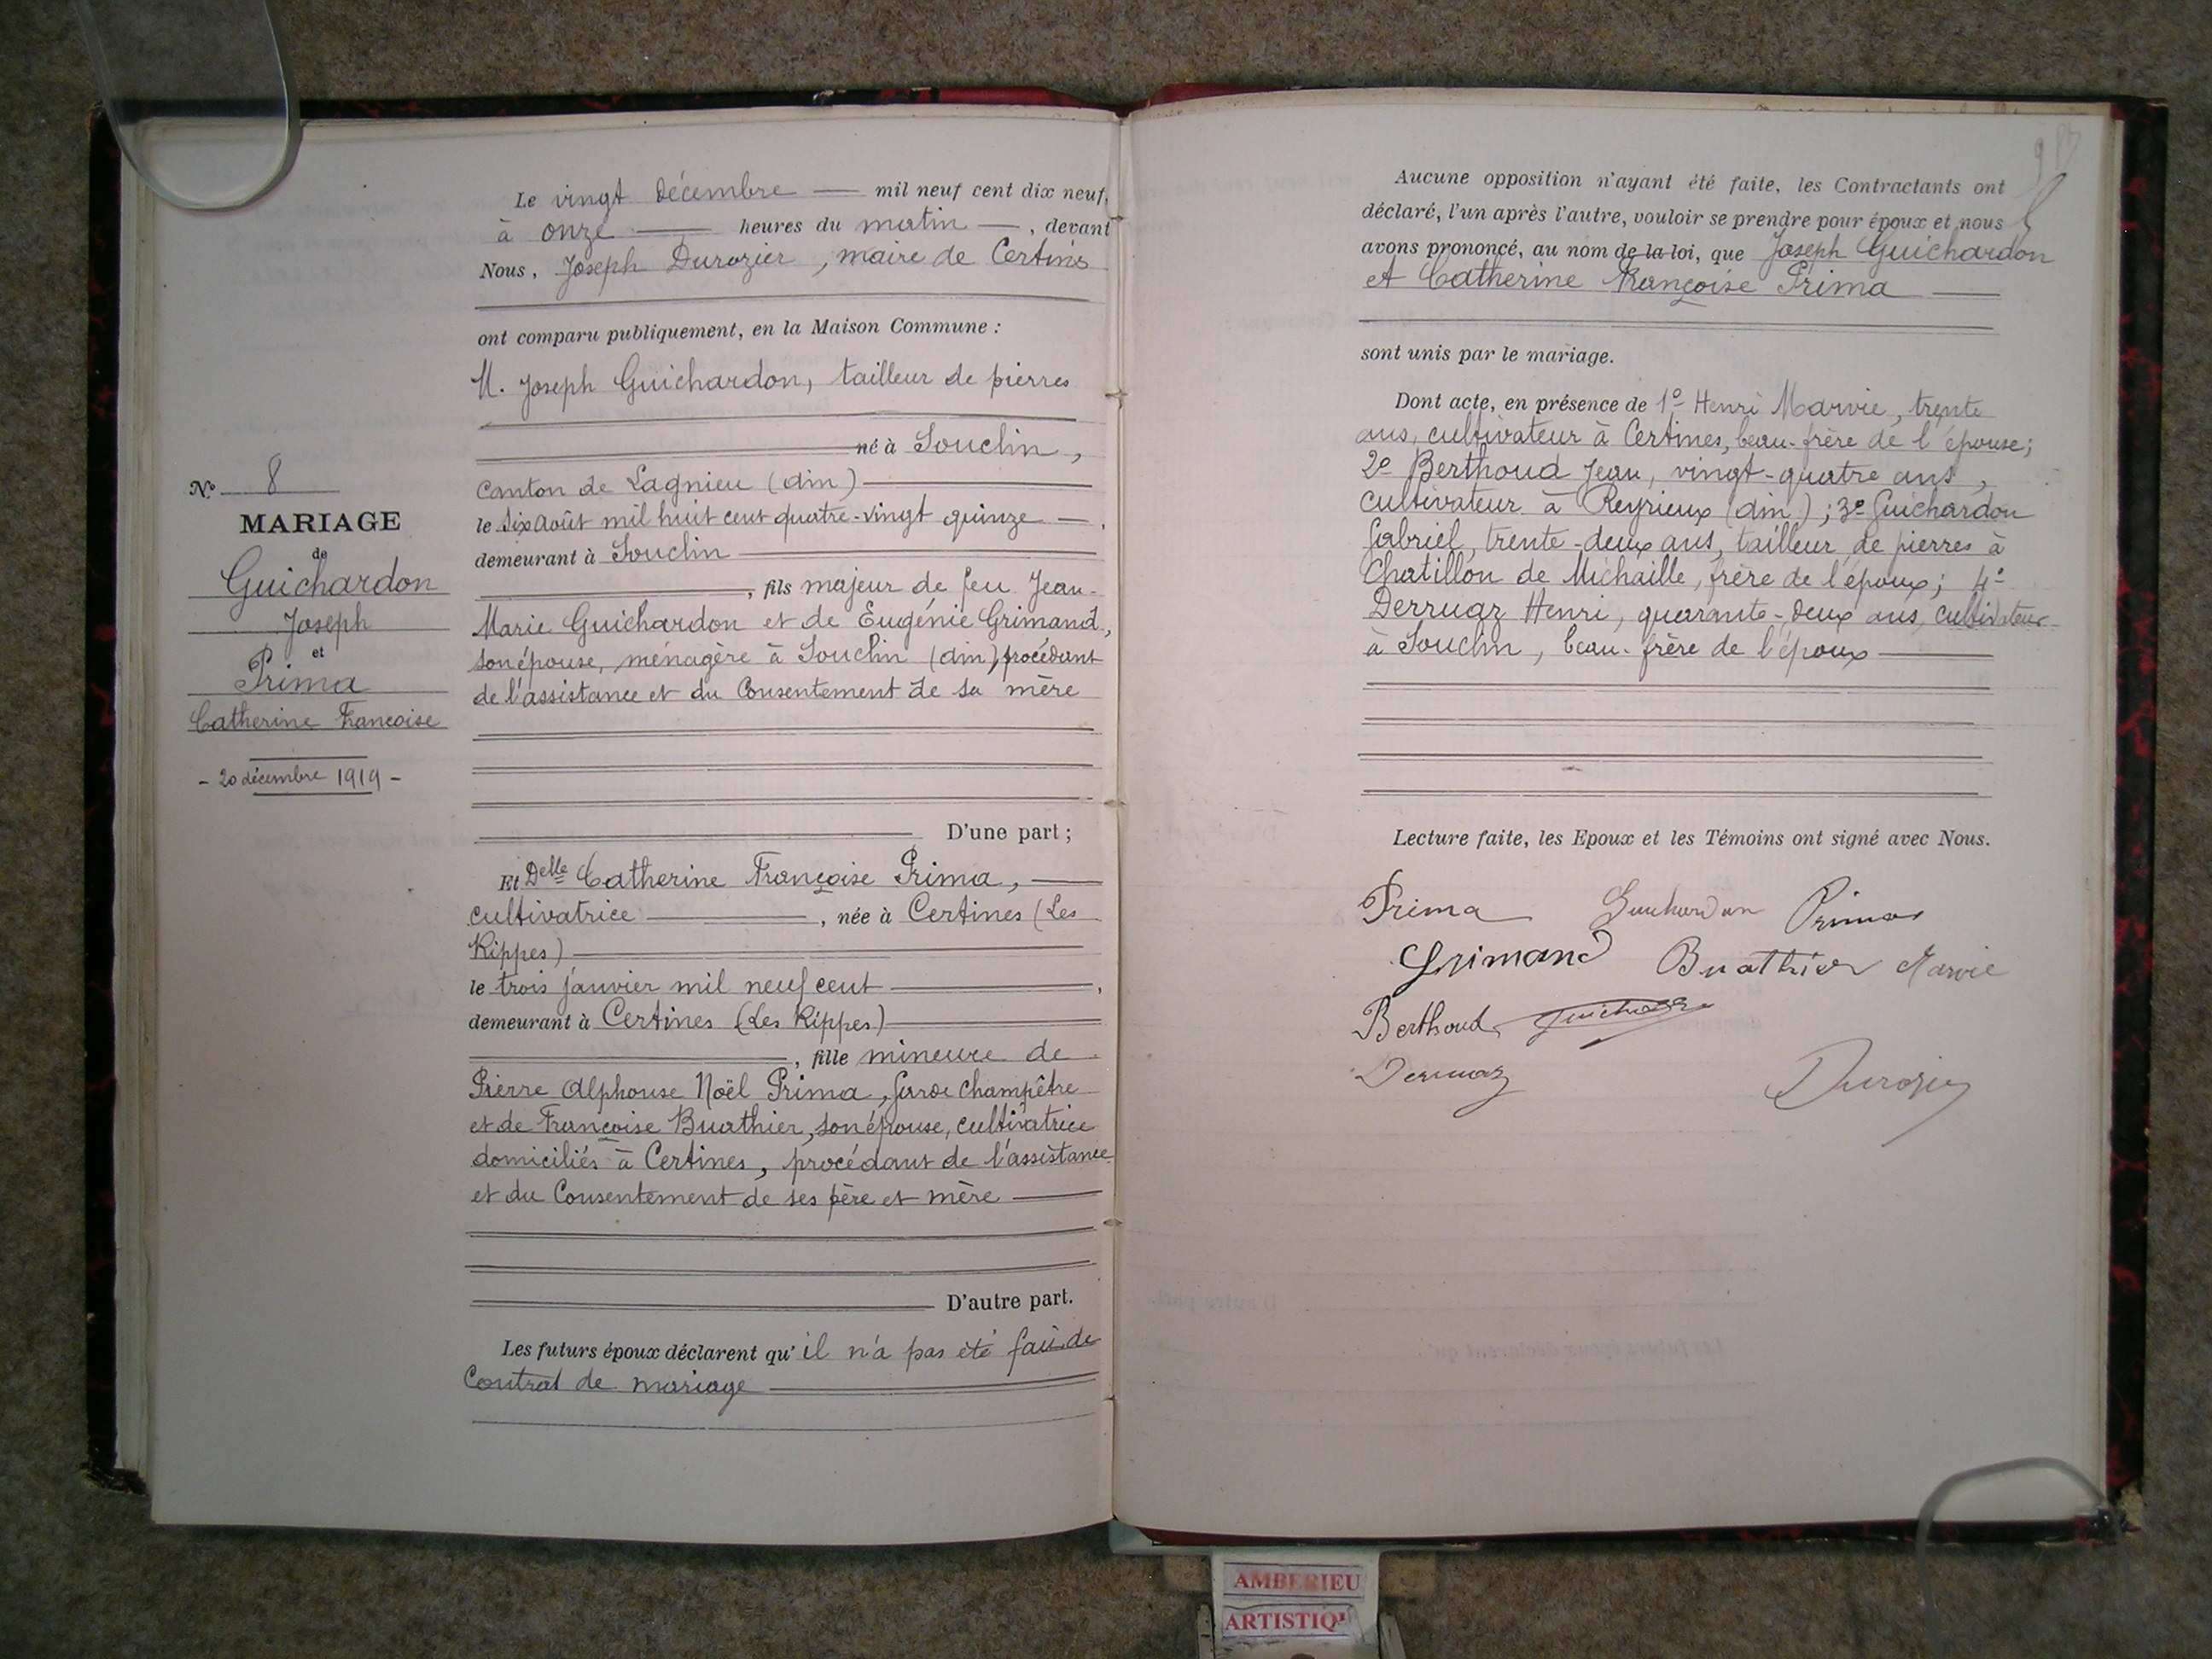 Le vingt décembre mil neuf cent dix neuf,
à onze heures du matin, devant
Nous, Joseph Durozier, maire de Certines
ont comparu publiquement, en la Maison Commune :
M. Joseph Guichardon, tailleur de pierres
né à Souclin,
canton de Lagnieu (Ain)
le six Août mil huit cent quatre-vingt quinze,
demeurant à Souclin
, fils majeur de feu Jean-
Marie Guichardon et de Eugénie Grimand,
son épouse, ménagère à Souclin (Ain), procédant
de l'assistance et du Consentement de sa mère
D'une part ;
Nº 8
MARIAGE
de
Guichardon
Joseph
et
Prima
Catherine Françoise
- 20 décembre 1919 -
Et Delle Catherine Françoise Prima,
cultivatrice, née à Certines (Les
Rippes)
le trois janvier mil neuf cent,
demeurant à Certines (Les Rippes)
, fille mineure de
Pierre Alphonse Noël Prima, garde champêtre
et de Françoise Buathier, son épouse, cultivatrice
domiciliés à Certines, procédant de l'assistance
et du Consentement de ses père et mère
D'autre part.
Les futurs époux déclarent qu'il n'a pas été fait de
Contrat de mariage
Aucune opposition n'ayant été faite, les Contractants ont
déclaré, l'un après l'autre, vouloir se prendre pour époux et nous
avons prononcé, au nom de la loi, que Joseph Guichardon
et Catherine Françoise Prima
sont unis par le mariage.
Dont acte, en présence de 1º Henri Marvie, trente
ans, cultivateur à Certines, beau-frère de l'épouse;
2º Berthoud Jean, vingt-quatre ans,
cultivateur à Reyrieux (Ain); 3º Guichardon
Gabriel, trente-deux ans, tailleur de pierres à
Chatillon de Michaille, frère de l'époux; 4º
Derruaz Henri, quarante-deux ans, cultivateur
à Souclin, beau-frère de l'époux
Lecture faite, les Epoux et les Témoins ont signé avec Nous.
Prima Guichardon Prima
Grimand Buathier Marvie
Berthoud Guichardon
Derruaz Durozier
AMBERIEU
ARTISTIQ